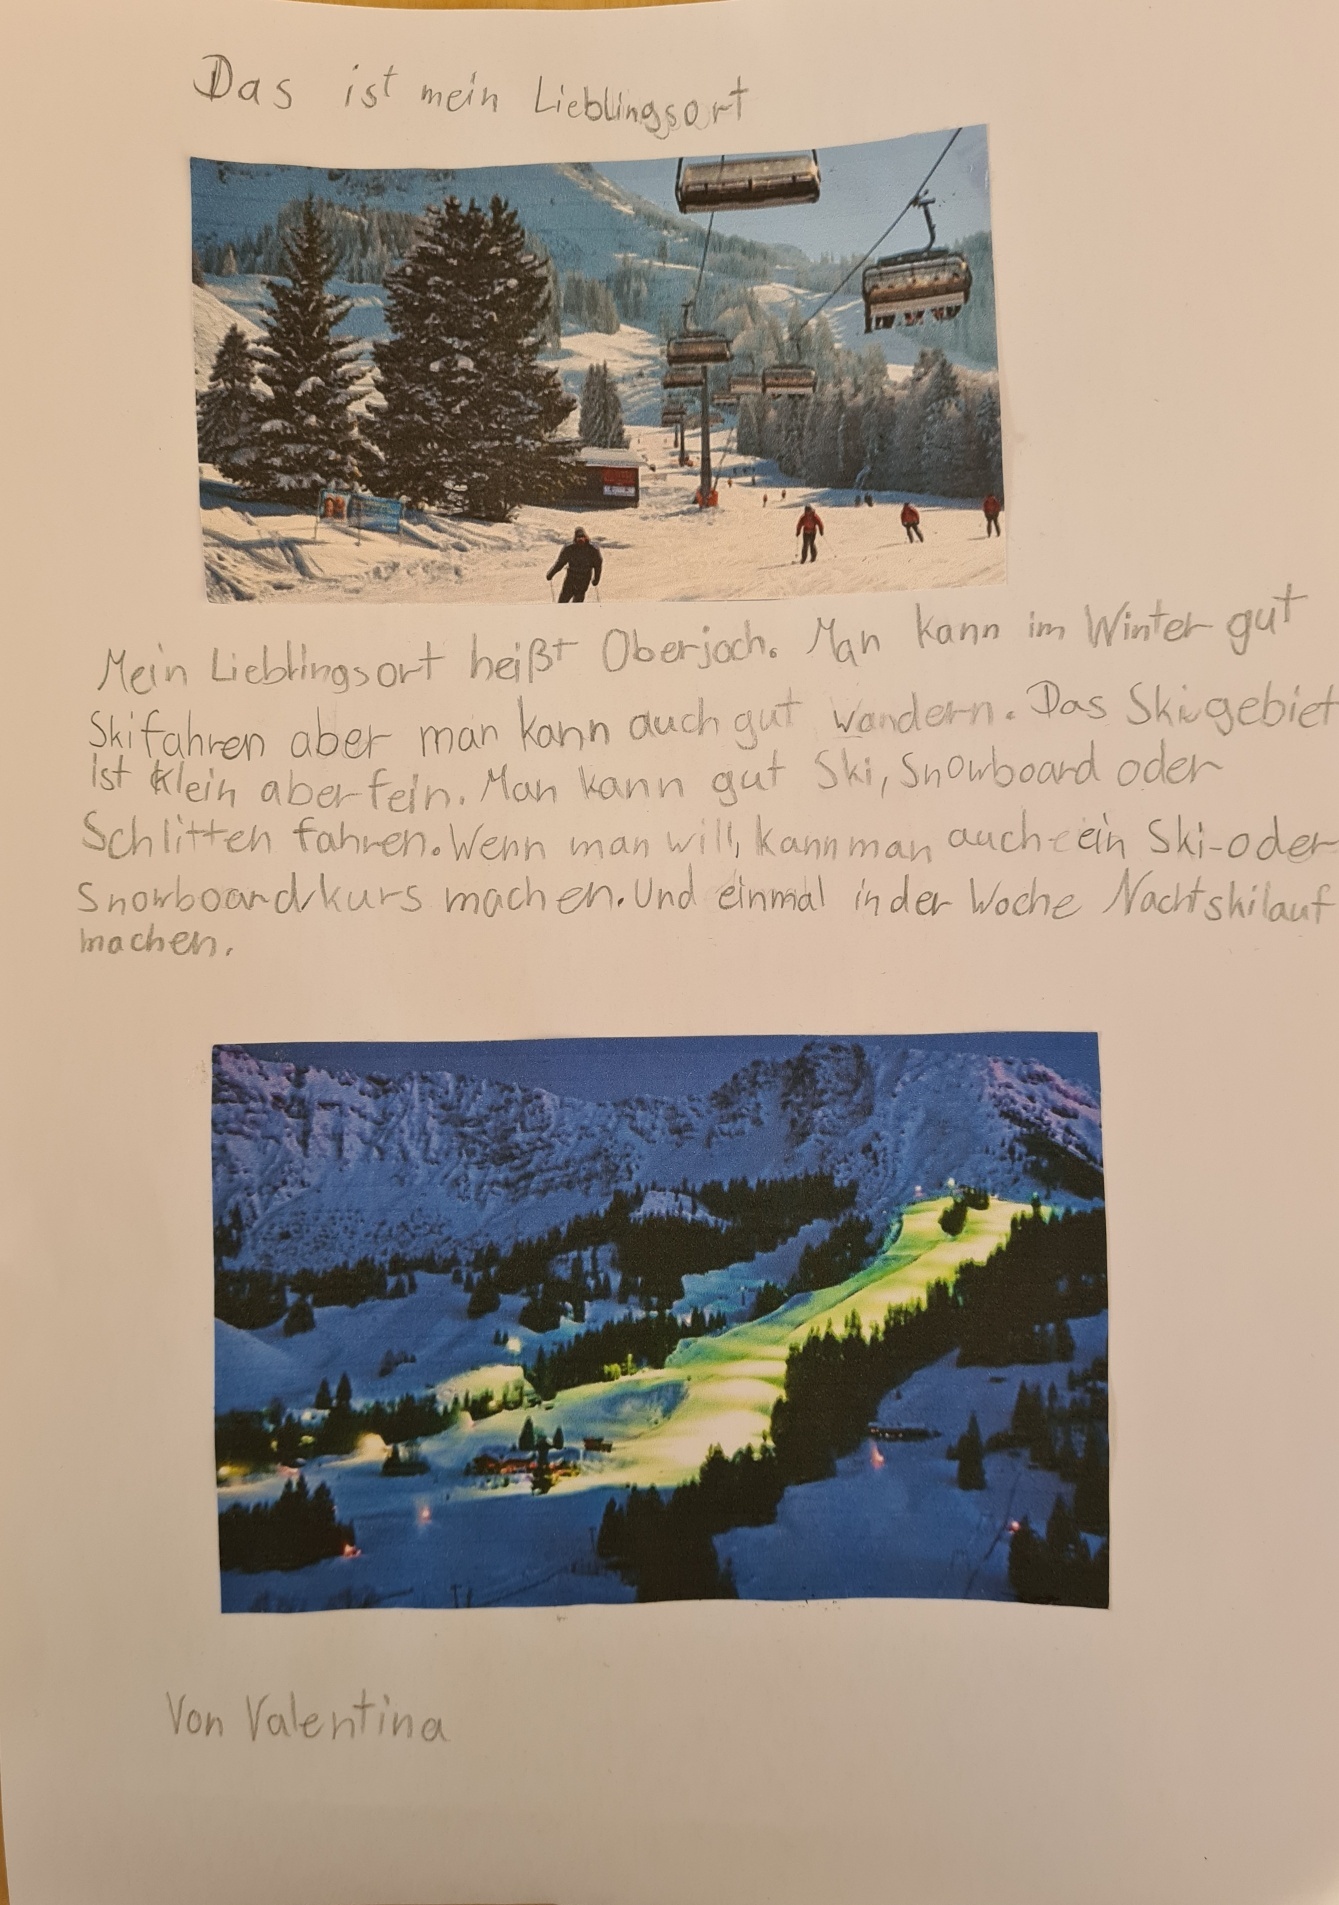 Das ist mein Lieblingsort
Mein Lieblingsort heißt Oberjoch. Man kann im Winter gut
Skifahren aber man kann auch gut wandern. Das Skigebiet
ist klein aber fein. Man kann gut Ski, Snowboard oder
Schlitten fahren. Wenn man will, kann man auch ein Ski-oder
Snowboardkurs machen. Und einmal in der Woche Nachtskilauf
machen.
Von Valentina